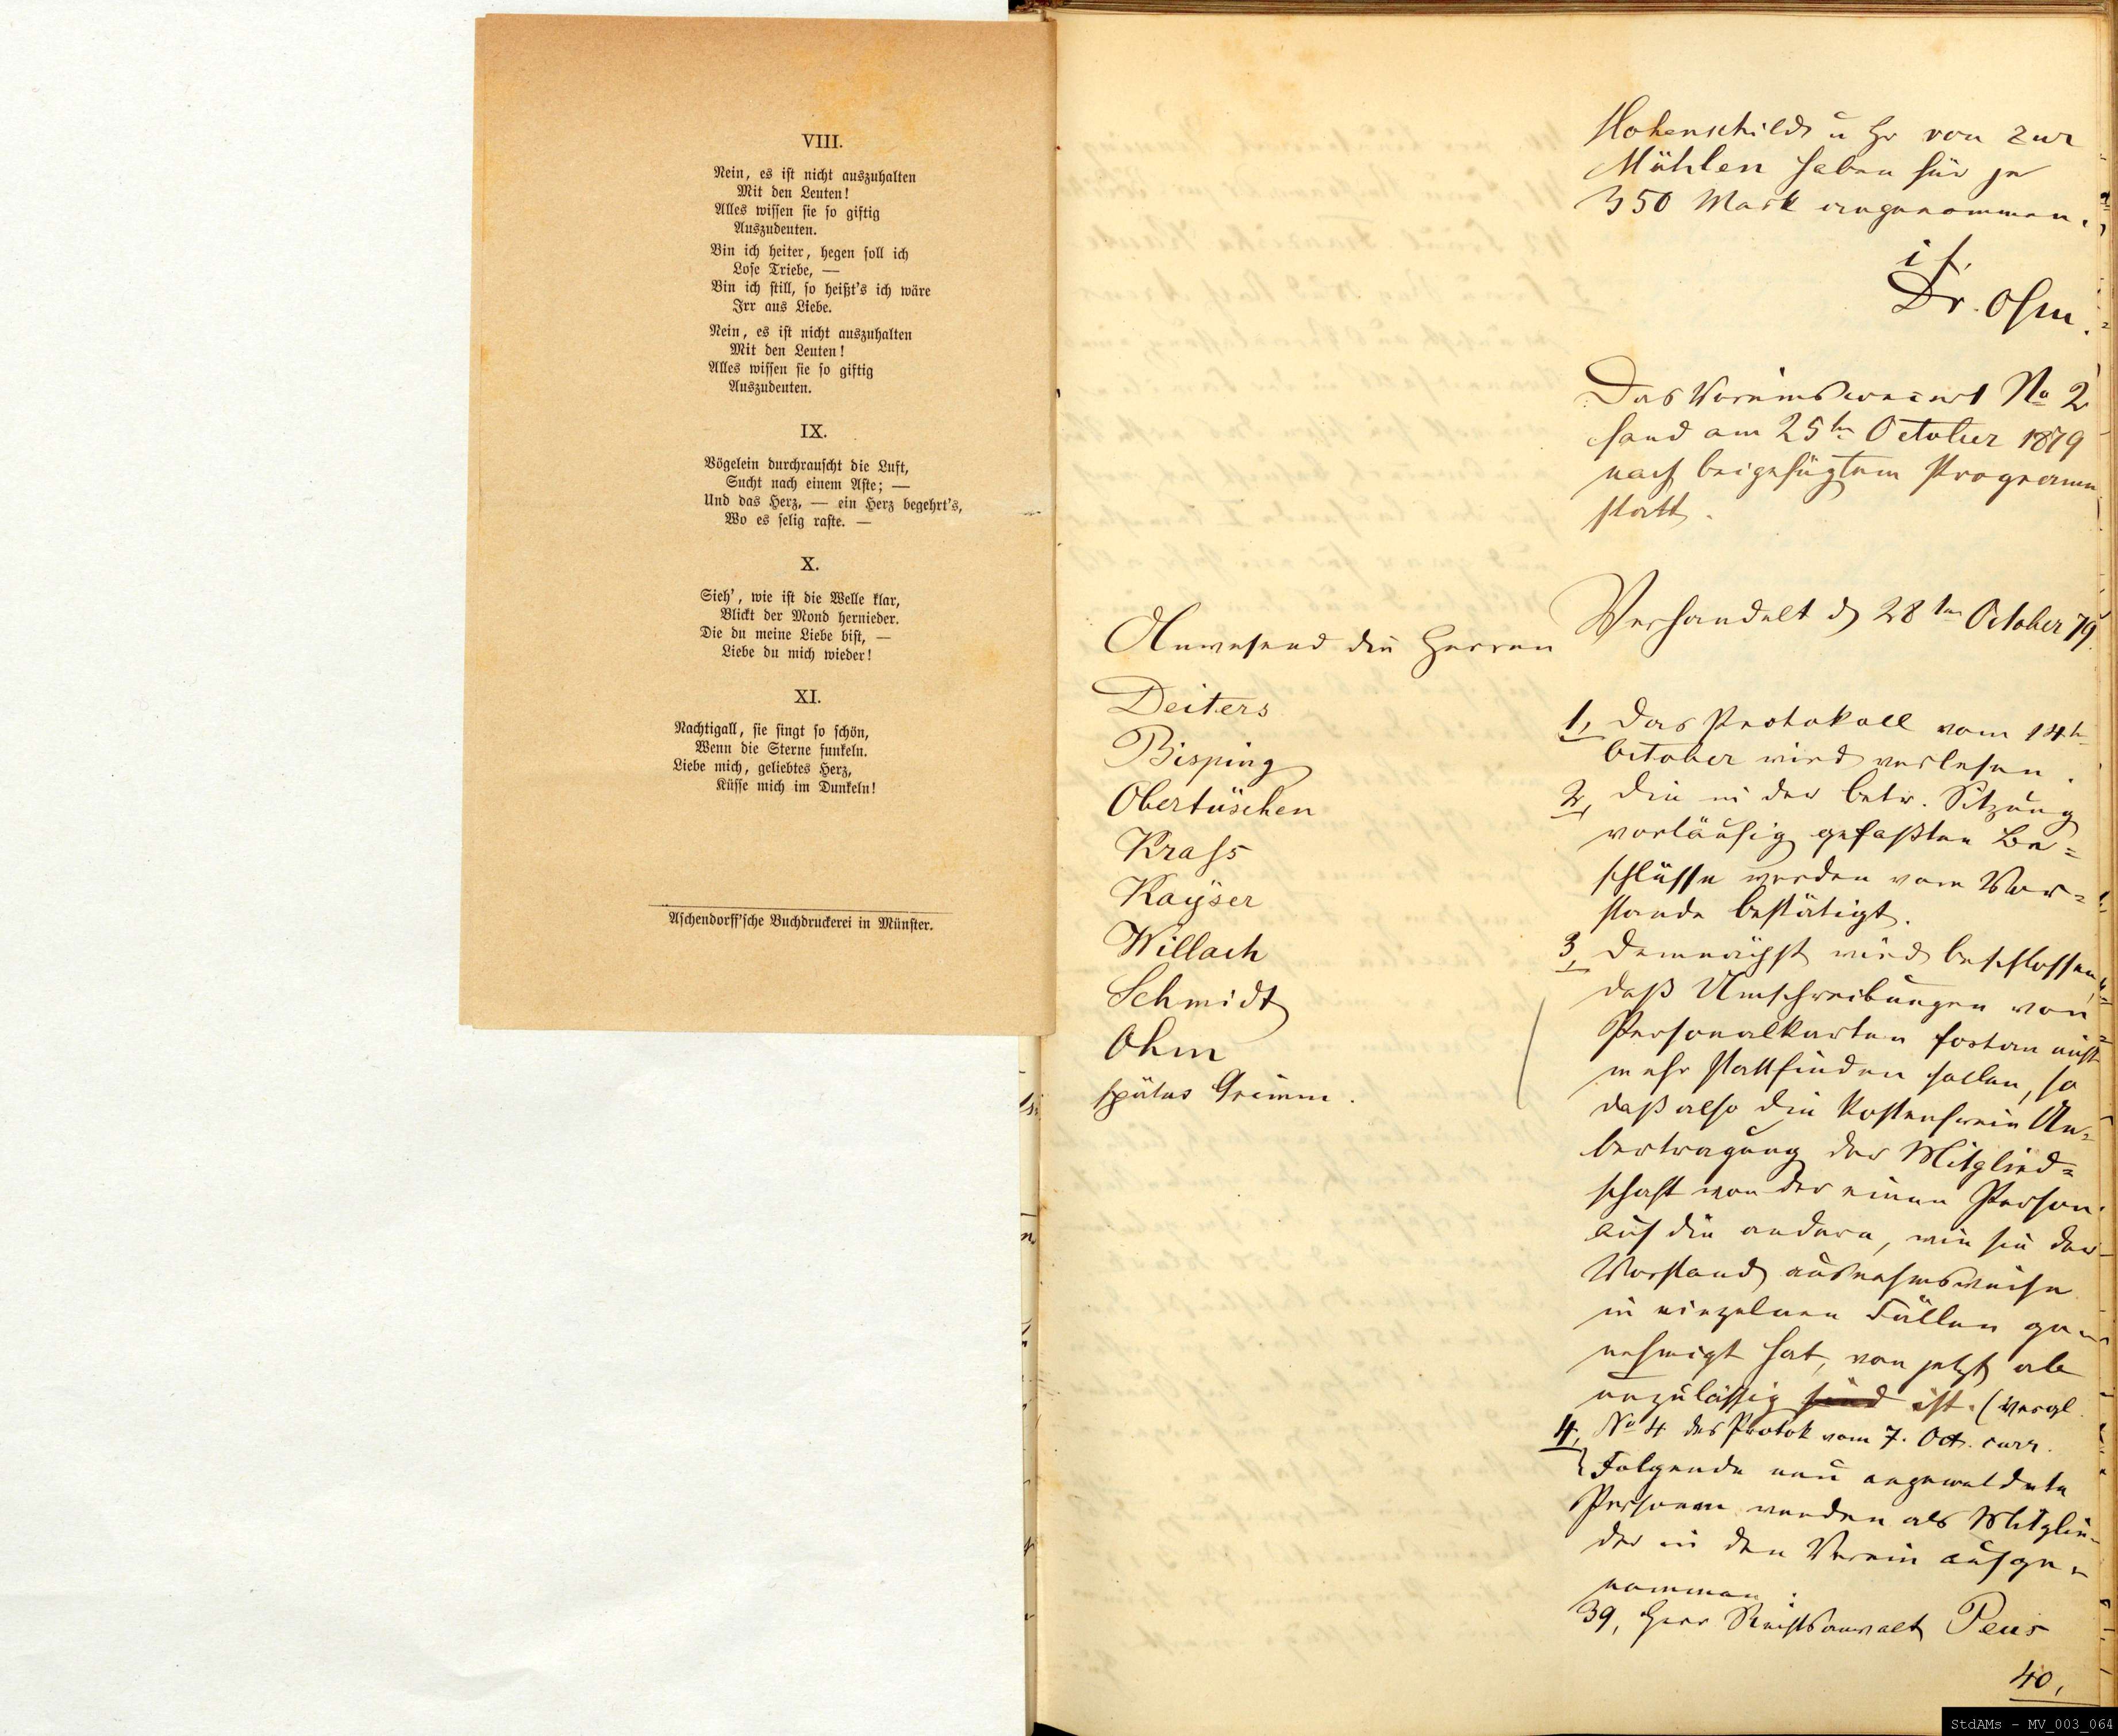 VIII.
Nein, es ist nicht auszuhalten
Mit den Leuten!
Alles wissen sie so giftig
Auszudeuten.
Bin ich heiter, hegen soll ich
Lose Triebe, —
Bin ich still, so heißt's ich wäre
Irr aus Liebe.
Nein, es ist nicht auszuhalten
Mit den Leuten!
Alles wissen sie so giftig
Auszudeuten.
IX.
Vögelein durchrauscht die Luft,
Sucht nach einem Aste; —
Und das Herz, — ein Herz begehrt's,
Wo es selig raste. —
X.
Sieh', wie ist die Welle klar,
Blickt der Mond hernieder.
Die du meine Liebe bist, —
Liebe du mich wieder!
XI.
Nachtigall, sie singt so schön,
Wenn die Sterne funkeln.
Liebe mich, geliebtes Herz,
Küsse mich im Dunkeln!
Aschendorff'sche Buchdruckerei in Münster.
Hohenschild u Hr von zur
Mühlen haben für je
350 Mark angenommen.
Dr. Ohm.
Das Vereinsconcert No 2
fand am 25ten October 1879
nach beigefügtem Programm
statt.
Verhandelt d 28ten October 79.
Anwesend die Herren
Deiters
Bisping
Obertüschen
Krass
Kayser
Willach
Schmidt
Ohm
später Grimm.
1, Das Protokoll vom 14t
October wird verlesen.
2, Die in der betr. Sitzung
vorläufig gefaßten Be=
schlüsse werden vom Vor=
stande bestätigt.
3, Demnächst wird beschlossen,
daß Umschreibungen von
Personalkarten fortan nicht
mehr stattfinden sollen, so
daß also die kostenfreie Ue=
bertragung der Mitglied=
schaft von der einen Person
auf die andere, wie sie der
Vorstand ausnahmsweise
in einzelnen Fällen ge=
nehmigt hat, von jetzt ab
unzulässig sind ist. (vergl
No 4 des Protok vom 7. Oct. curr.
4, Folgende neu angemeldete
Personen werden als Mitglie=
der in den Verein aufge=
nommen:
39, Herr Rechtsanwalt Peus
40,
StdAMs - MV_003_064